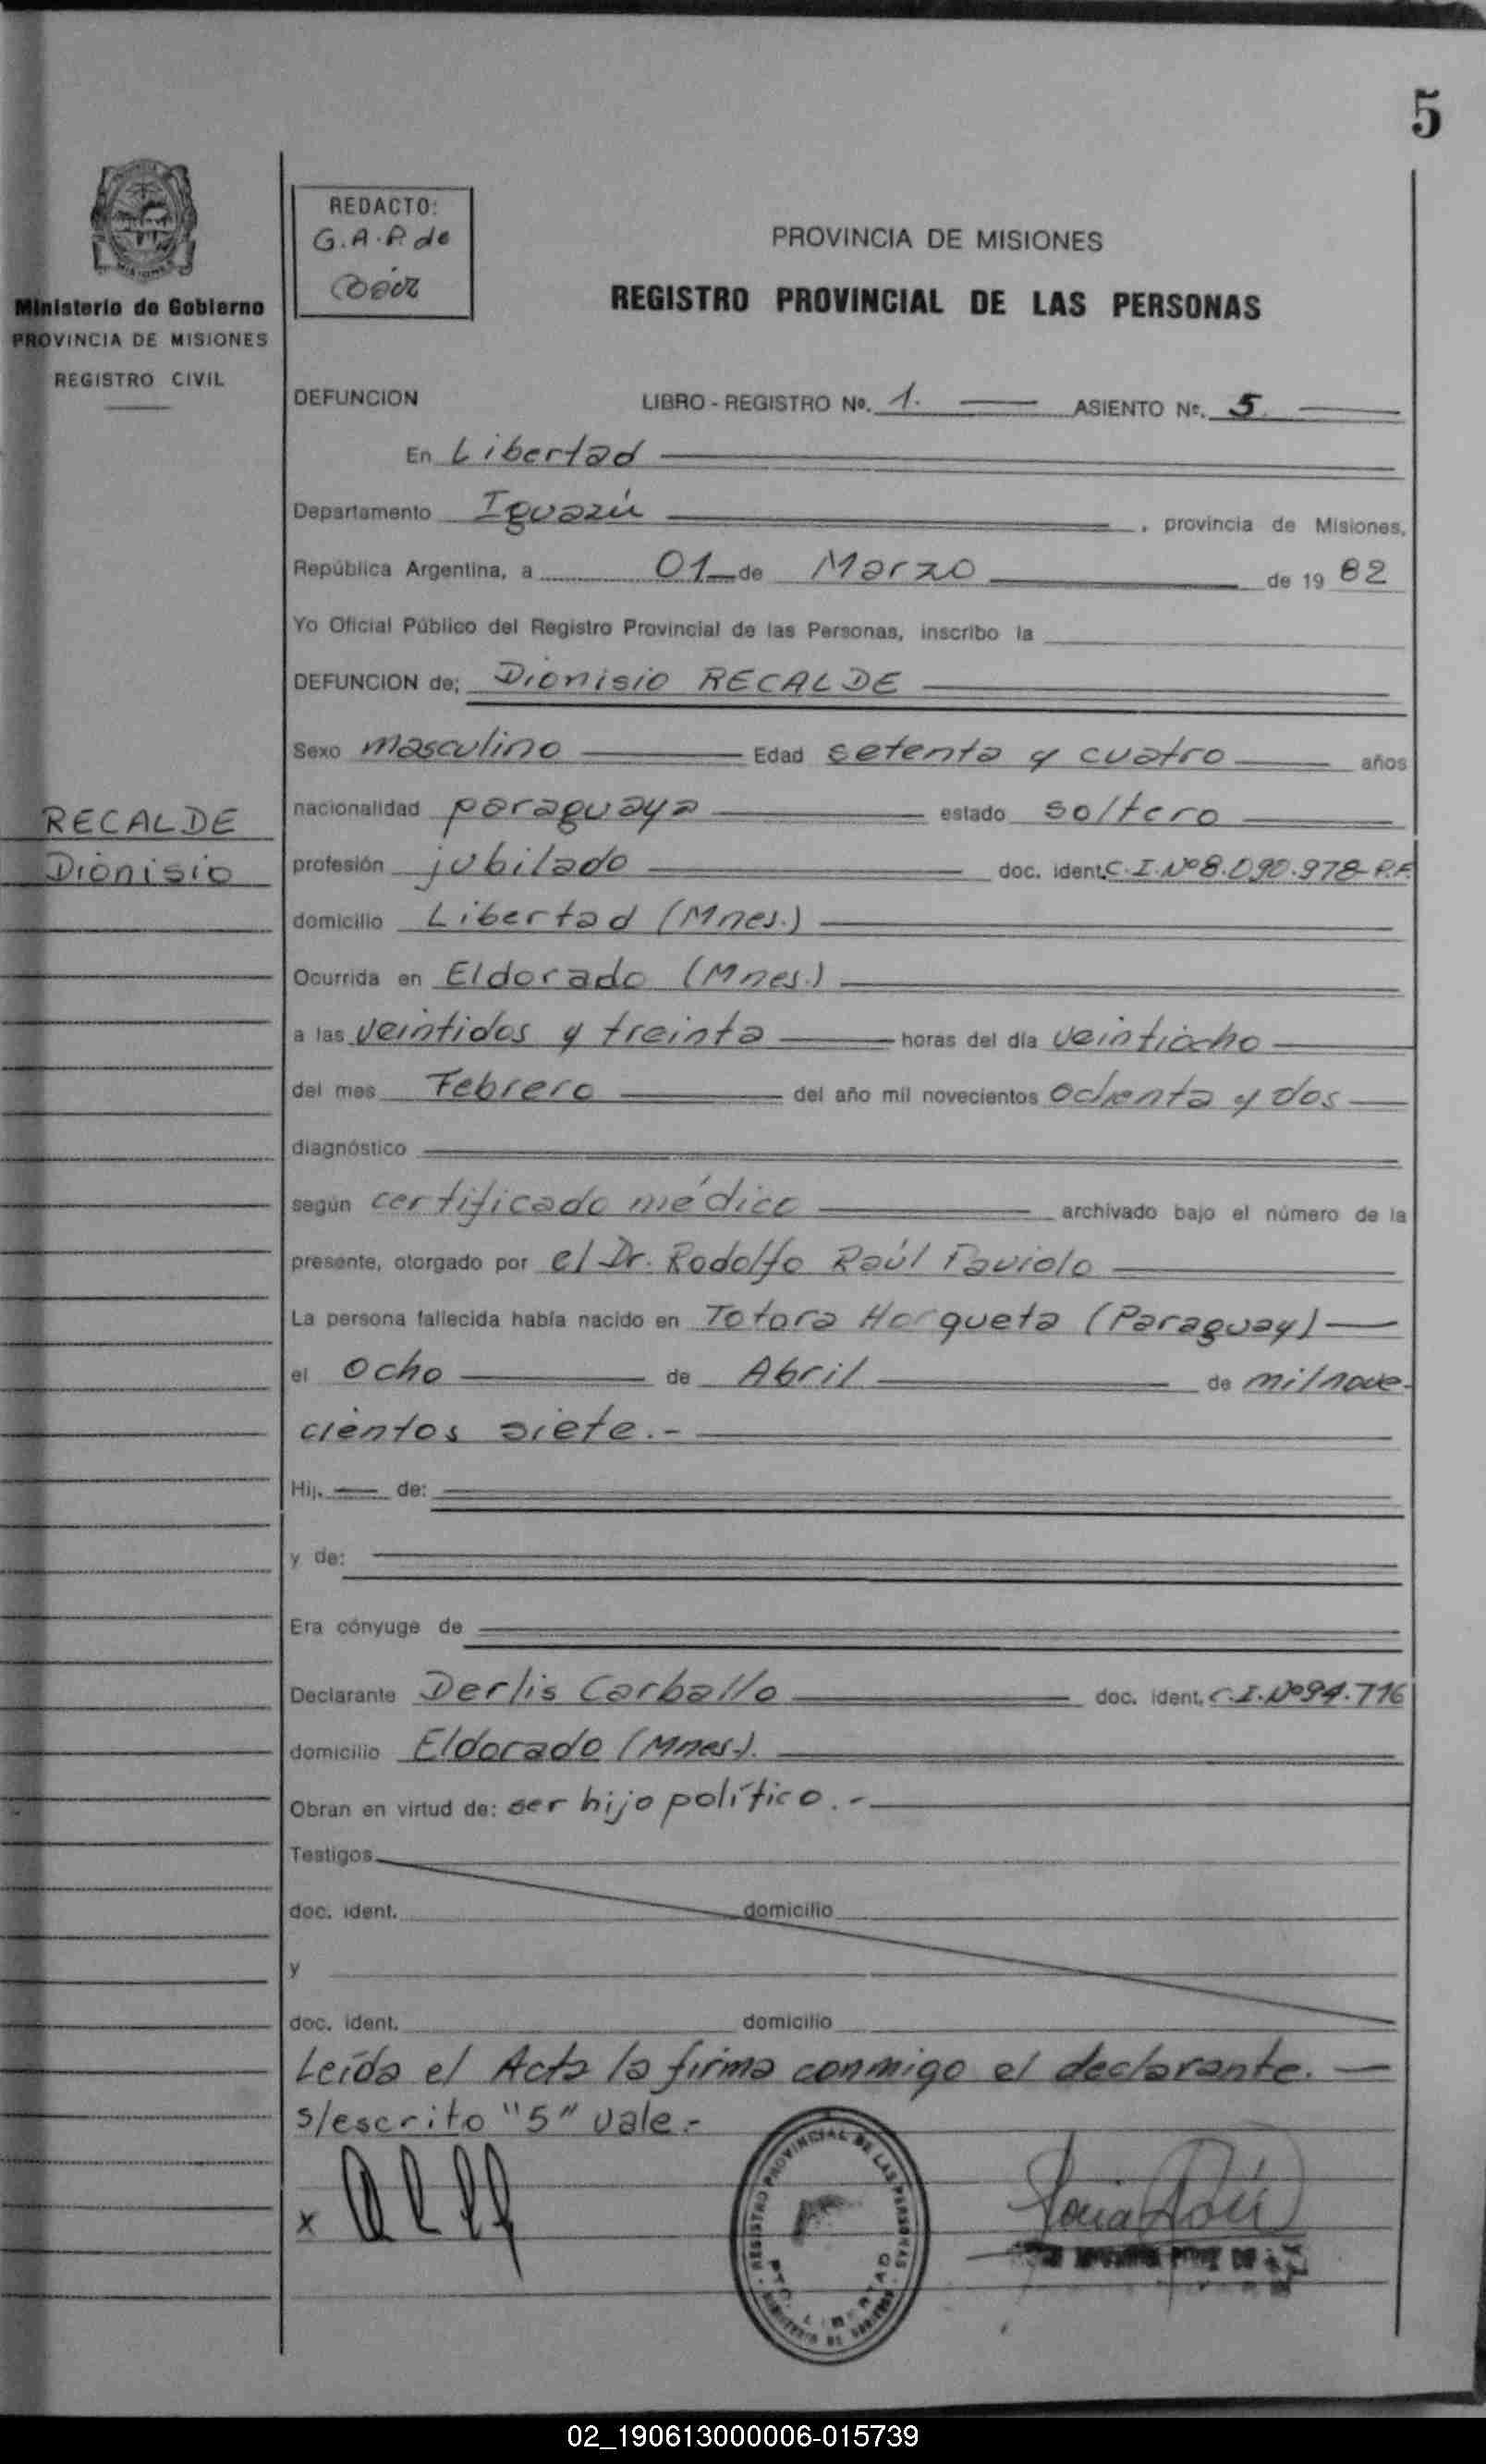 5
Ministerio de Gobierno
PROVINCIA DE MISIONES
REGISTRO CIVIL
RECALDE
Dionisio
REDACTO:
G.A.P. de
PROVINCIA DE MISIONES
REGISTRO PROVINCIAL DE LAS PERSONAS
DEFUNCION LIBRO - REGISTRO Nº. 1. ASIENTO Nº. 5
En Libertad
Departamento Iguazú , provincia de Misiones,
República Argentina, a 01 de Marzo de 19 82
Yo Oficial Público del Registro Provincial de las Personas, inscribo la
DEFUNCION de; Dionisio RECALDE
Sexo masculino Edad setenta y cuatro años
nacionalidad paraguaya estado soltero
profesión jubilado doc. ident. C.I.Nº 8.090.978-P.F.
domicilio Libertad (Mnes.)
Ocurrida en Eldorado (Mnes.)
a las veintidos y treinta horas del día veintiocho
del mes Febrero del año mil novecientos ochenta y dos
diagnóstico
según certificado médico archivado bajo el número de la
presente, otorgado por el Dr. Rodolfo Raúl Faviolo
La persona fallecida había nacido en Totora Horqueta (Paraguay)
el ocho de Abril de mil nove-
cientos siete.-
Hij. de:
y de:
Era cónyuge de
Declarante Derlis Carballo doc. ident. C.I.Nº 94.716
domicilio Eldorado (Mnes.).
Obran en virtud de: ser hijo político.-
Testigos
doc. ident. domicilio
y
doc. ident. domicilio
Leída el Acta la firma conmigo el declarante.
s/escrito "5" vale.-
x
REGISTRO PROVINCIAL DE LAS PERSONAS
PTO. LIBERTAD
MINISTERIO DE GOBIERNO
02_190613000006-015739